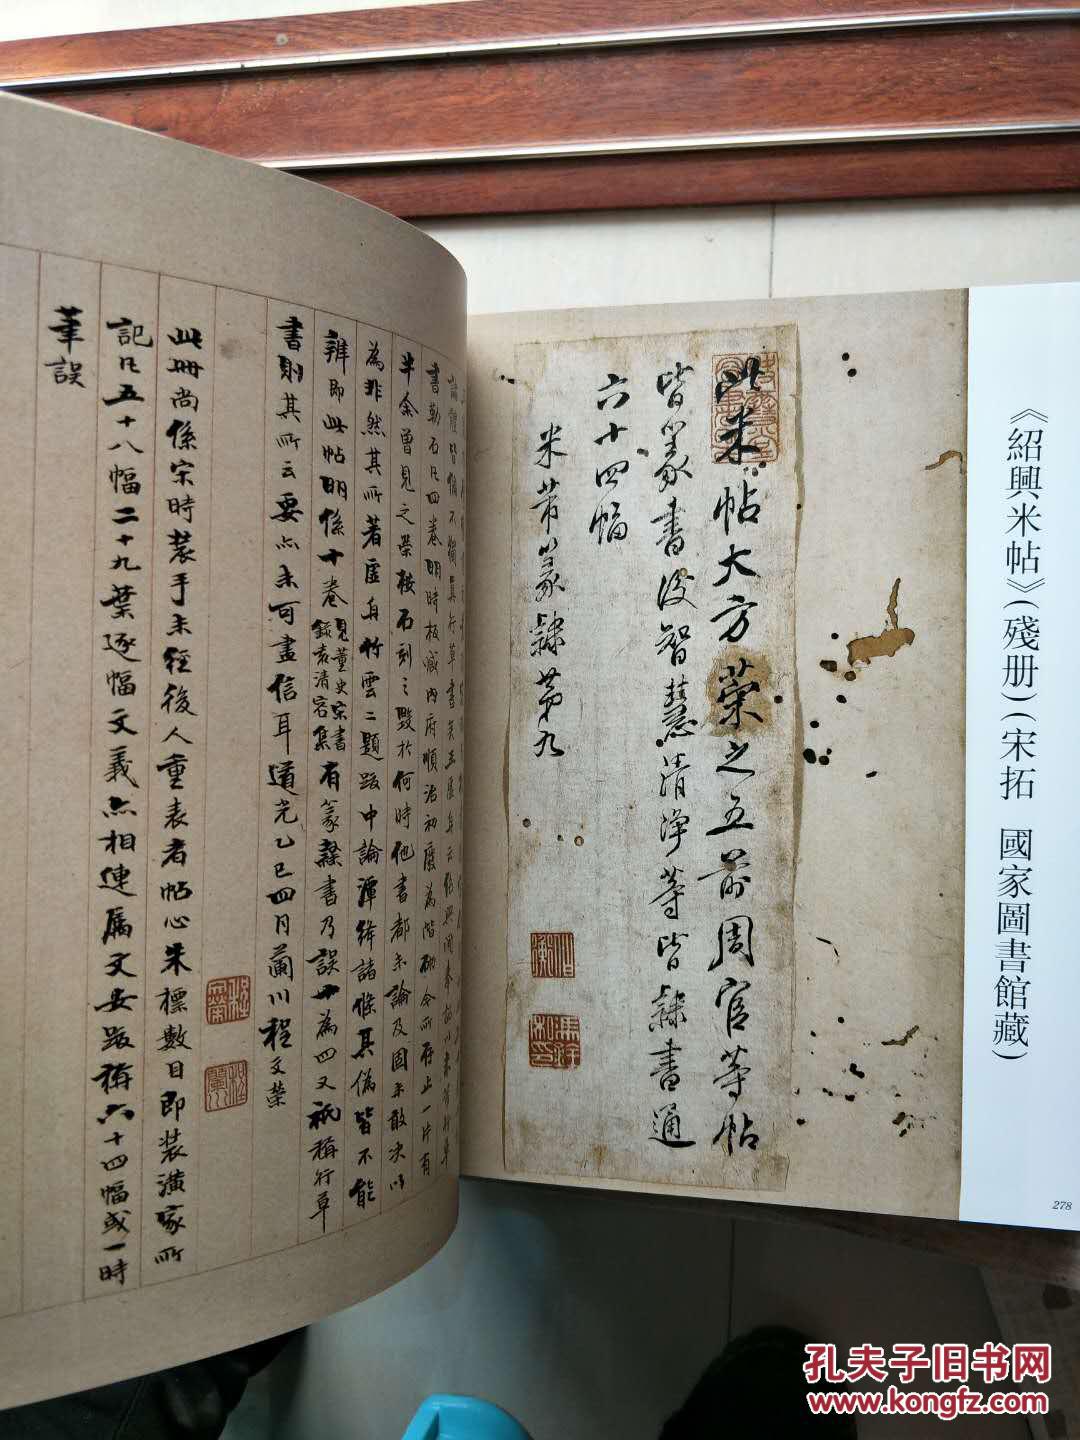 《紹興米帖》(殘册)(宋拓 國家圖書館藏)
278
此米帖大方策之五前周官等帖
皆篆書後智慧清淨等皆隸書通
六十四幅
米芾篆隸第九
書勒石凡四卷明時板藏内府順治初廢為階砌今所存止一片有
半余曾見之榮按石刻之毀於何時他書都未論及固未敢决以
為非然其所著虛舟竹雲二題跋中論潭絳諸條其偽皆不能
辨即此帖明係十卷見董史宋書錄袁清容集有篆隸書乃誤十為四又祇稱行草
書則其所云要亦未可盡信耳道光乙巳四月蘭川程文榮
此册尚係宋時裝手未經後人重表者帖心朱標數目即裝潢家所
記凡五十八幅二十九葉逐幅文義亦相連屬文安跋稱六十四幅或一時
筆誤
孔夫子旧书网
www.kongfz.com